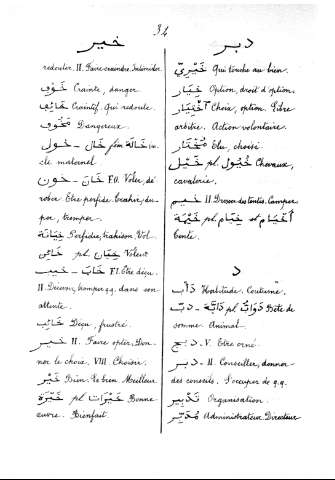 34
خير
redouter. II. Faire craindre. Intimider
خَوْف Crainte, danger.
خَائِف Craintif. Qui redoute.
مَخُوف Dangereux.
خول - خَال fém. خَالَة on
cle maternel
خون - خَانَ F.O. Voler, dé
rober. Etre perfide. trahir, du-
per, tromper.
خِيَانَة Perfidie, trahison. Vol.
خَائِن pl. خُيَّان Voleur
خيب - خَابَ F.I. Etre déçu.
II. Décevoir, tromper q.q. dans son
attente.
خَائِب Déçu, frustré.
خير II. Faire opter. Don-
ner le choix. VIII. Choisir.
خَيْر Bien. Le bien. Meilleur
خَيْرَة pl. خَيْرَات Bonne
œuvre. Bienfait.
دبر
خَيْرِيّ Qui touche au bien.
خِيَار Option, droit d'option.
اخْتِيَار Choix, option. Libre
arbitre. Action volontaire.
مُخْتَار Elu, choisi
خَيْل pl. خُيُول Chevaux,
cavalerie.
خيم II Dresser des tentes. Camper
خَيْمَة pl. خِيَام et أَخْيَام
Tente.
د
دَأْب Habitude. Coutume.
دبّ - دَابَّة pl. دَوَابّ Bête de
somme. Animal.
دبج. V. Etre orné.
دبر - II. Conseiller, donner
des conseils. S'occuper de q.q.
تَدْبِير Organisation.
مُدَبِّر Administrateur. Directeur